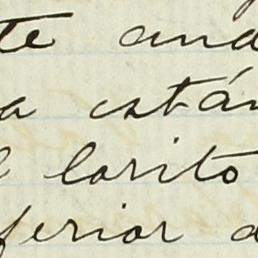 te and
a están
l lorito
ferior a